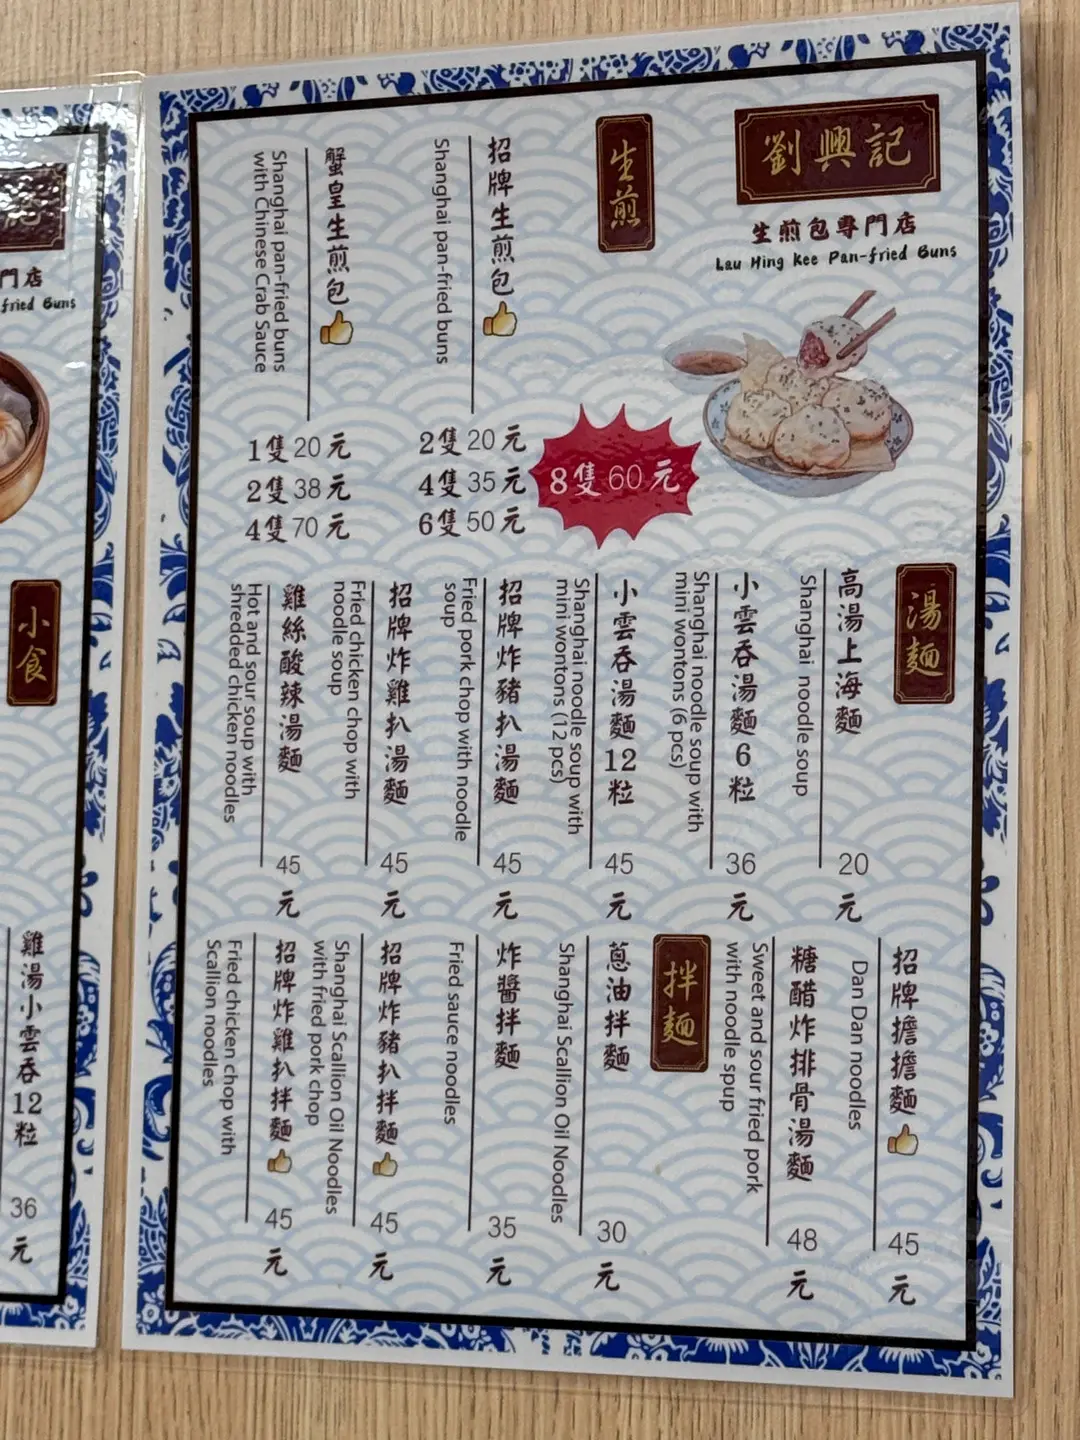 劉興記
生煎包專門店
Lau Hing Kee Pan-fried Buns
生煎
招牌生煎包
Shanghai pan-fried buns
2隻20元
4隻35元
6隻50元
8隻60元
蟹皇生煎包
Shanghai pan-fried buns
with Chinese Crab Sauce
1隻20元
2隻38元
4隻70元
湯麵
高湯上海麵
Shanghai noodle soup
20元
小雲吞湯麵6粒
Shanghai noodle soup with
mini wontons (6 pcs)
36元
小雲吞湯麵12粒
Shanghai noodle soup with
mini wontons (12 pcs)
45元
招牌炸豬扒湯麵
Fried pork chop with noodle
soup
45元
招牌炸雞扒湯麵
Fried chicken chop with
noodle soup
45元
雞絲酸辣湯麵
Hot and sour soup with
shredded chicken noodles
45元
招牌擔擔麵
Dan Dan noodles
45元
糖醋炸排骨湯麵
Sweet and sour fried pork
with noodle spup
48元
拌麵
蔥油拌麵
Shanghai Scallion Oil Noodles
30元
炸醬拌麵
Fried sauce noodles
35元
招牌炸豬扒拌麵
Shanghai Scallion Oil Noodles
with fried pork chop
45元
招牌炸雞扒拌麵
Fried chicken chop with
Scallion noodles
45元
記
門店
fried Buns
小食
雞湯小雲吞12粒
36元